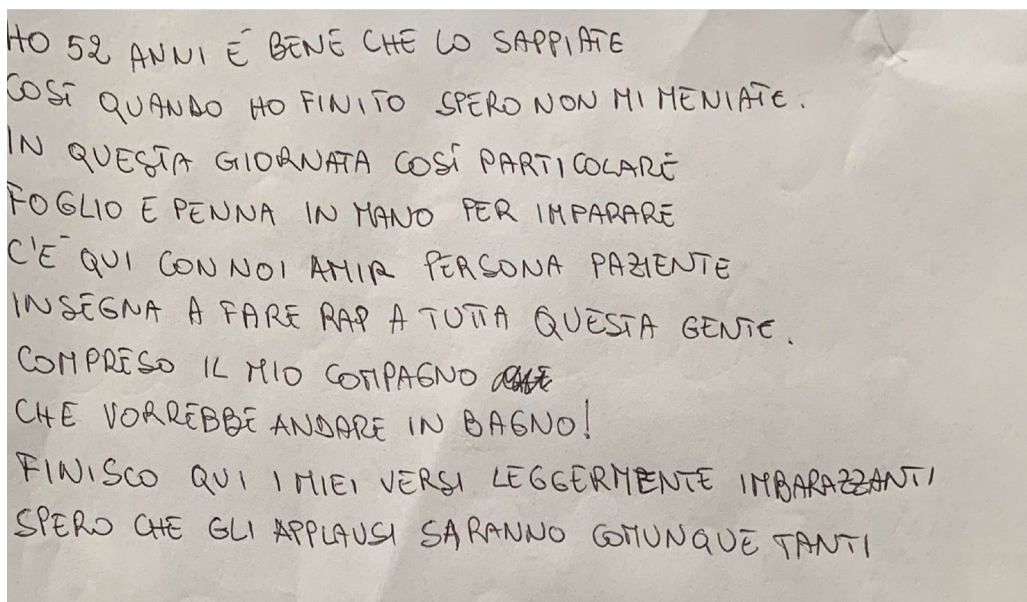 HO 52 ANNI É BENE CHE LO SAPPIATE
COSÍ QUANDO HO FINITO SPERO NON MI MENIATE.
IN QUESTA GIORNATA COSÍ PARTICOLARE
FOGLIO E PENNA IN MANO PER IMPARARE
C'É QUI CON NOI AMIR PERSONA PAZIENTE
INSEGNA A FARE RAP A TUTTA QUESTA GENTE.
COMPRESO IL MIO COMPAGNO
CHE VORREBBE ANDARE IN BAGNO!
FINISCO QUI I MIEI VERSI LEGGERMENTE IMBARAZZANTI
SPERO CHE GLI APPLAUSI SARANNO COMUNQUE TANTI